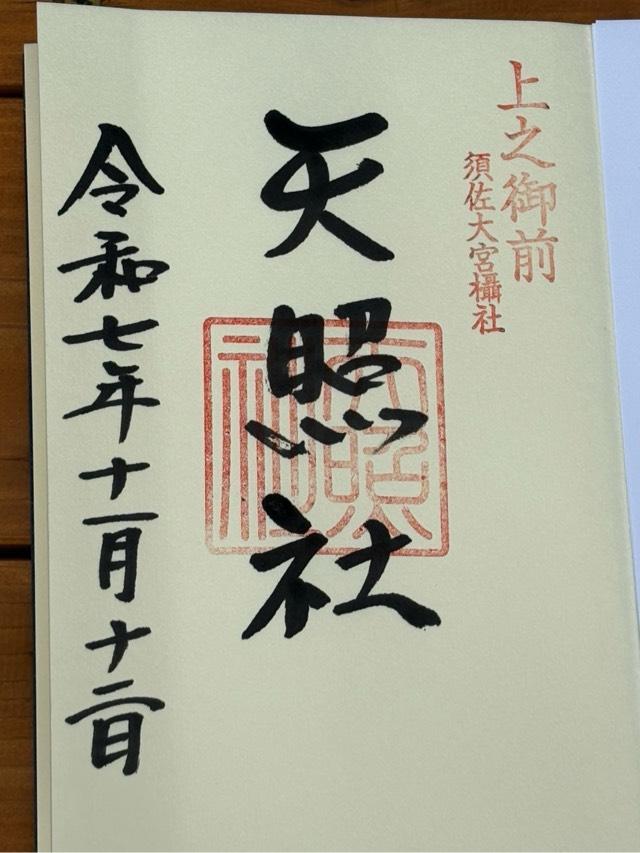 上之御前
須佐大宮攝社
天照社
天照社
令和七年十一月十二日